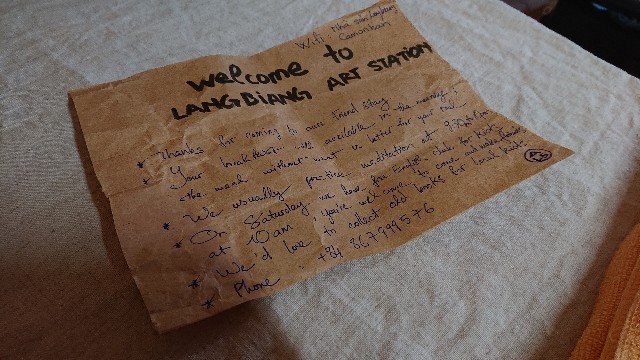 Wifi: Nhà sàn Langbiang
Camonban
Welcome to
LANGBIANG ART STATION
* Thanks for coming to our friend stay
* Your breakfast will available in the morning,
the meal without meat is better for your soul
* We usually practice meditation at
* On Saturday we have free English club for kids
at 10am, you're welcome to come and make friends
* We'd love to collect old books for local kids.
* Phone: +84 867999576